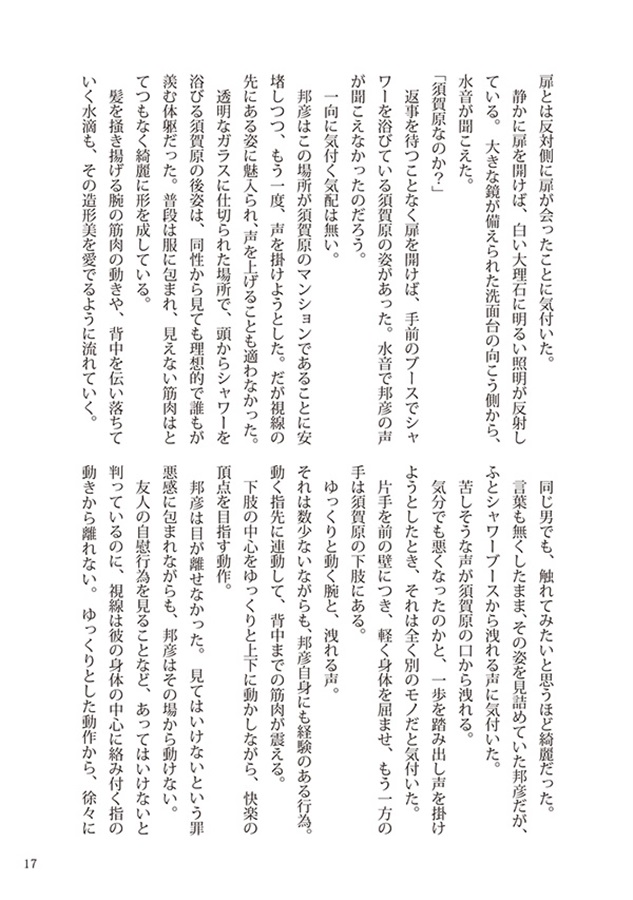 扉とは反対側に扉が会ったことに気付いた。
　静かに扉を開けば、白い大理石に明るい照明が反射し
ている。　大きな鏡が備えられた洗面台の向こう側から、
水音が聞こえた。
「須賀原なのか？」
　返事を待つことなく扉を開けば、手前のブースでシャ
ワーを浴びている須賀原の姿があった。水音で邦彦の声
が聞こえなかったのだろう。
　一向に気付く気配は無い。
　邦彦はこの場所が須賀原のマンションであることに安
堵しつつ、もう一度、声を掛けようとした。だが視線の
先にある姿に魅入られ、声を上げることも適わなかった。
　透明なガラスに仕切られた場所で、頭からシャワーを
浴びる須賀原の後姿は、同性から見ても理想的で誰もが
羨む体躯だった。普段は服に包まれ、見えない筋肉はと
てつもなく綺麗に形を成している。
　髪を掻き揚げる腕の筋肉の動きや、背中を伝い落ちて
いく水滴も、その造形美を愛でるように流れていく。
　同じ男でも、触れてみたいと思うほど綺麗だった。
　言葉も無くしたまま、その姿を見詰めていた邦彦だが、
ふとシャワーブースから洩れる声に気付いた。
　苦しそうな声が須賀原の口から洩れる。
　気分でも悪くなったのかと、一歩を踏み出し声を掛け
ようとしたとき、それは全く別のモノだと気付いた。
　片手を前の壁につき、軽く身体を屈ませ、もう一方の
手は須賀原の下肢にある。
　ゆっくりと動く腕と、洩れる声。
　それは数少ないながらも、邦彦自身にも経験のある行為。
動く指先に連動して、背中までの筋肉が震える。
　下肢の中心をゆっくりと上下に動かしながら、快楽の
頂点を目指す動作。
　邦彦は目が離せなかった。　見てはいけないという罪
悪感に包まれながらも、邦彦はその場から動けない。
　友人の自慰行為を見ることなど、あってはいけないと
判っているのに、視線は彼の身体の中心に絡み付く指の
動きから離れない。　ゆっくりとした動作から、徐々に
17